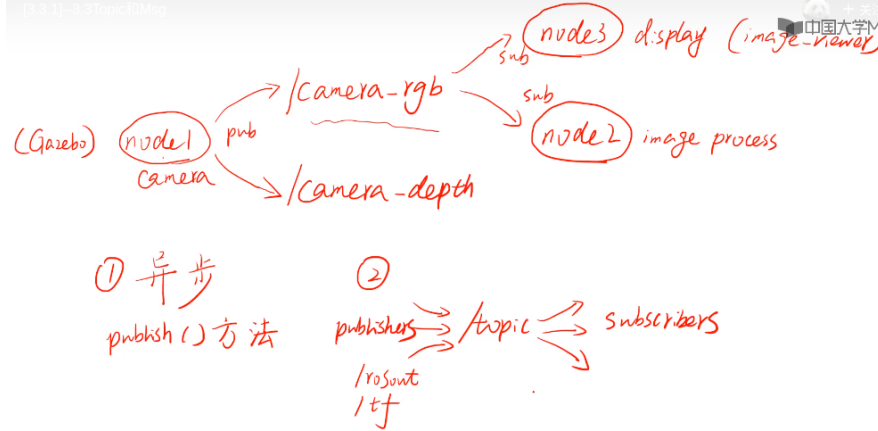 [3.3.1]--3.3Topic和Msg
中国大学M
node3 display (image_viewer)
sub
/camera_rgb
sub
(Gazebo) node1 pub
node2 image process
camera
/camera_depth
① 异步 ②
publish()方法
publishers /topic subscribers
/rosout
/tf